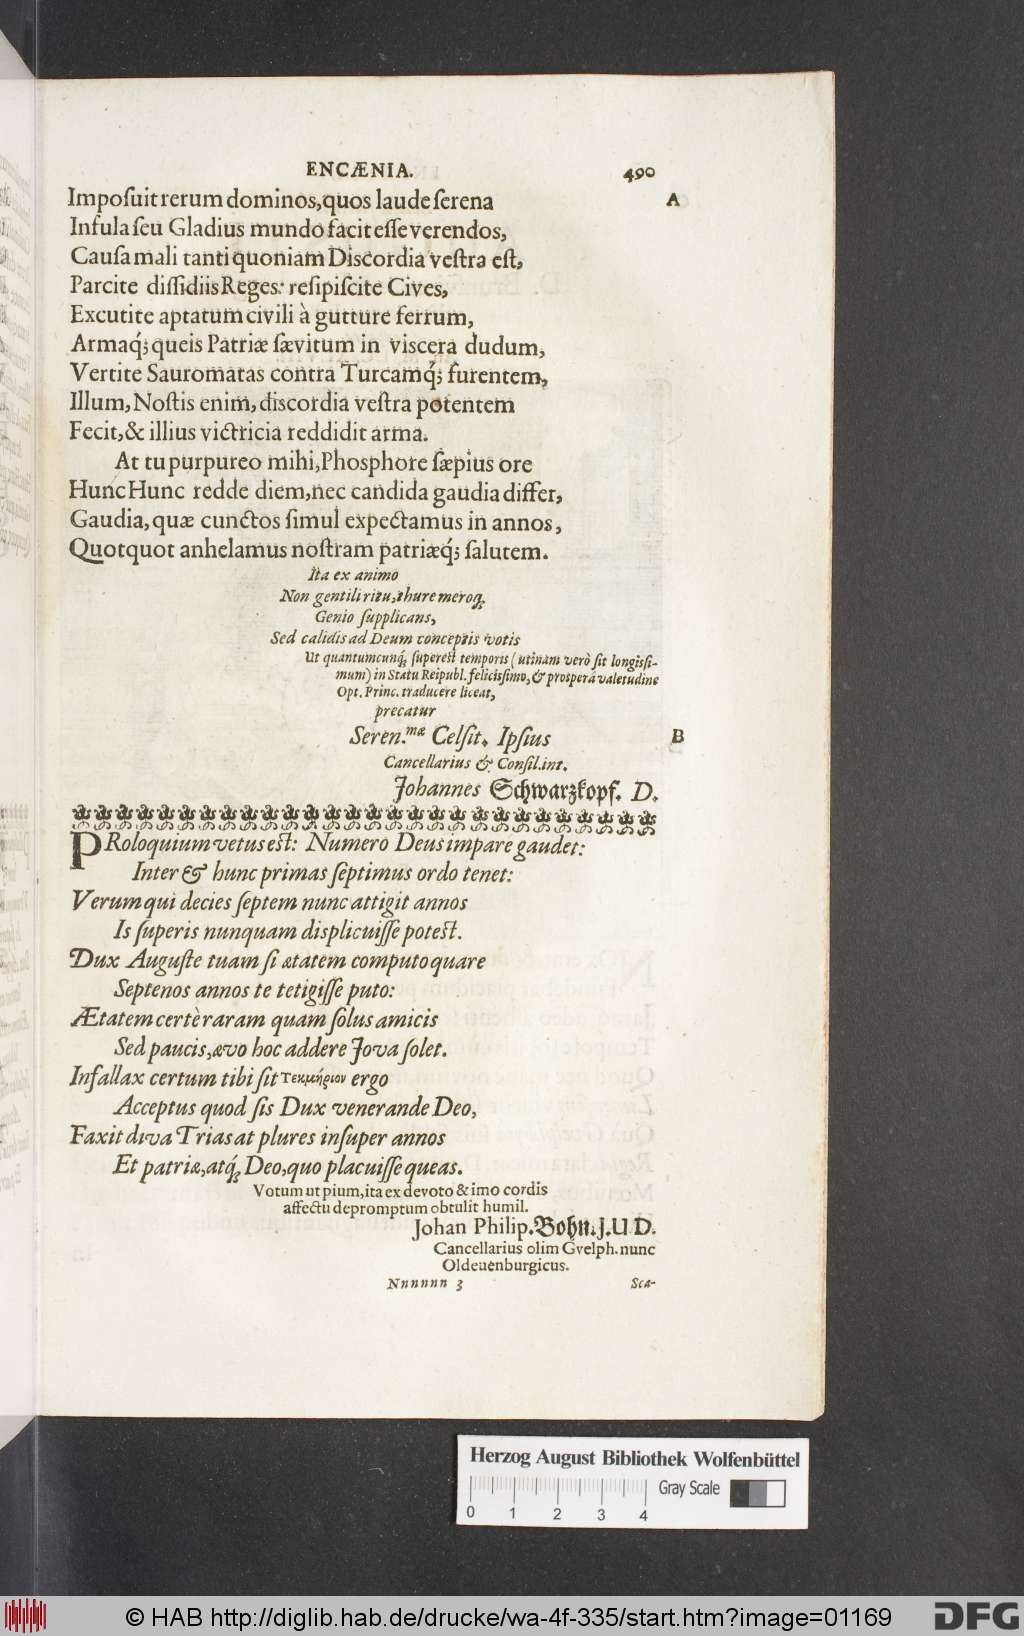 ENCÆNIA. 490
Impoſuit rerum dominos, quos laude ſerena A
Infula ſeu Gladius mundo facit eſſe verendos,
Cauſa mali tanti quoniam Discordia veſtra eſt,
Parcite diſſidiis Reges: reſipiſcite Cives,
Excutite aptatum civili à gutture ferrum,
Armaq́; queis Patriæ ſævitum in viscera dudum,
Vertite Sauromatas contra Turcamq́; furentem,
Illum, Noſtis enim, discordia veſtra potentem
Fecit, & illius victricia reddidit arma.
At tu purpureo mihi, Phosphore ſæpius ore
Hunc Hunc redde diem, nec candida gaudia differ,
Gaudia, quæ cunctos ſimul expectamus in annos,
Quotquot anhelamus noſtram patriæq́; ſalutem.
Ita ex animo
Non gentili ritu, thure meroq;
Genio ſupplicans,
Sed calidis ad Deum conceptis votis
Ut quantumcunq; ſupereſt temporis (utinam verò ſit longiſſi-
mum) in Statu Reipubl. feliciſſimo, & proſperâ valetudine
Opt. Princ. traducere liceat,
precatur
Seren.mæ Celſit. Ipſius B
Cancellarius & Conſil. int.
Johannes Schwarzkopf. D.
PRoloquium vetus eſt: Numero Deus impare gaudet:
Inter & hunc primas ſeptimus ordo tenet:
Verum qui decies ſeptem nunc attigit annos
Is ſuperis nunquam displicuiſſe poteſt.
Dux Auguſte tuam ſi ætatem computo quare
Septenos annos te tetigiſſe puto:
Ætatem certè raram quam ſolus amicis
Sed paucis, ævo hoc addere Jova ſolet.
Infallax certum tibi ſit Τεκμήριον ergo
Acceptus quod ſis Dux venerande Deo,
Faxit diva Trias at plures inſuper annos
Et patriæ, atq; Deo, quo placuiſſe queas.
Votum ut pium, ita ex devoto & imo cordis
affectu depromptum obtulit humil.
Johan Philip. Bohn. J. U D.
Cancellarius olim Gvelph. nunc
Oldeuenburgicus.
Nnnnnn 3 Sca-
Herzog August Bibliothek Wolfenbüttel
Gray Scale
0 1 2 3 4
© HAB http://diglib.hab.de/drucke/wa-4f-335/start.htm?image=01169 DFG